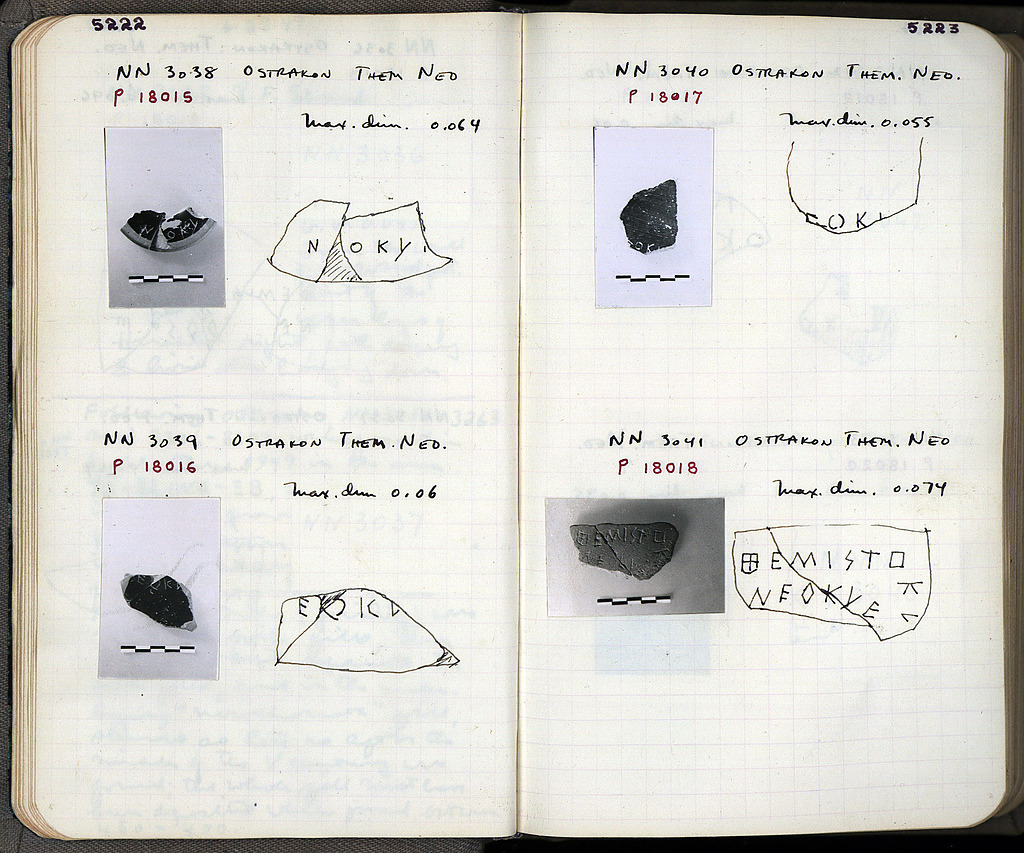 5222
NN 3038 OSTRAKON THEM NEO
P 18015
Max. dim. 0.064
N OKVI
NN 3039 OSTRAKON THEM. NEO.
P 18016
Max. dim 0.06
EOKV
5223
NN 3040 OSTRAKON THEM. NEO.
P 18017
Max. dim. 0.055
EOK
NN 3041 OSTRAKON THEM. NEO
P 18018
Max. dim. 0.074
⊞EMISTO
NEOKVE